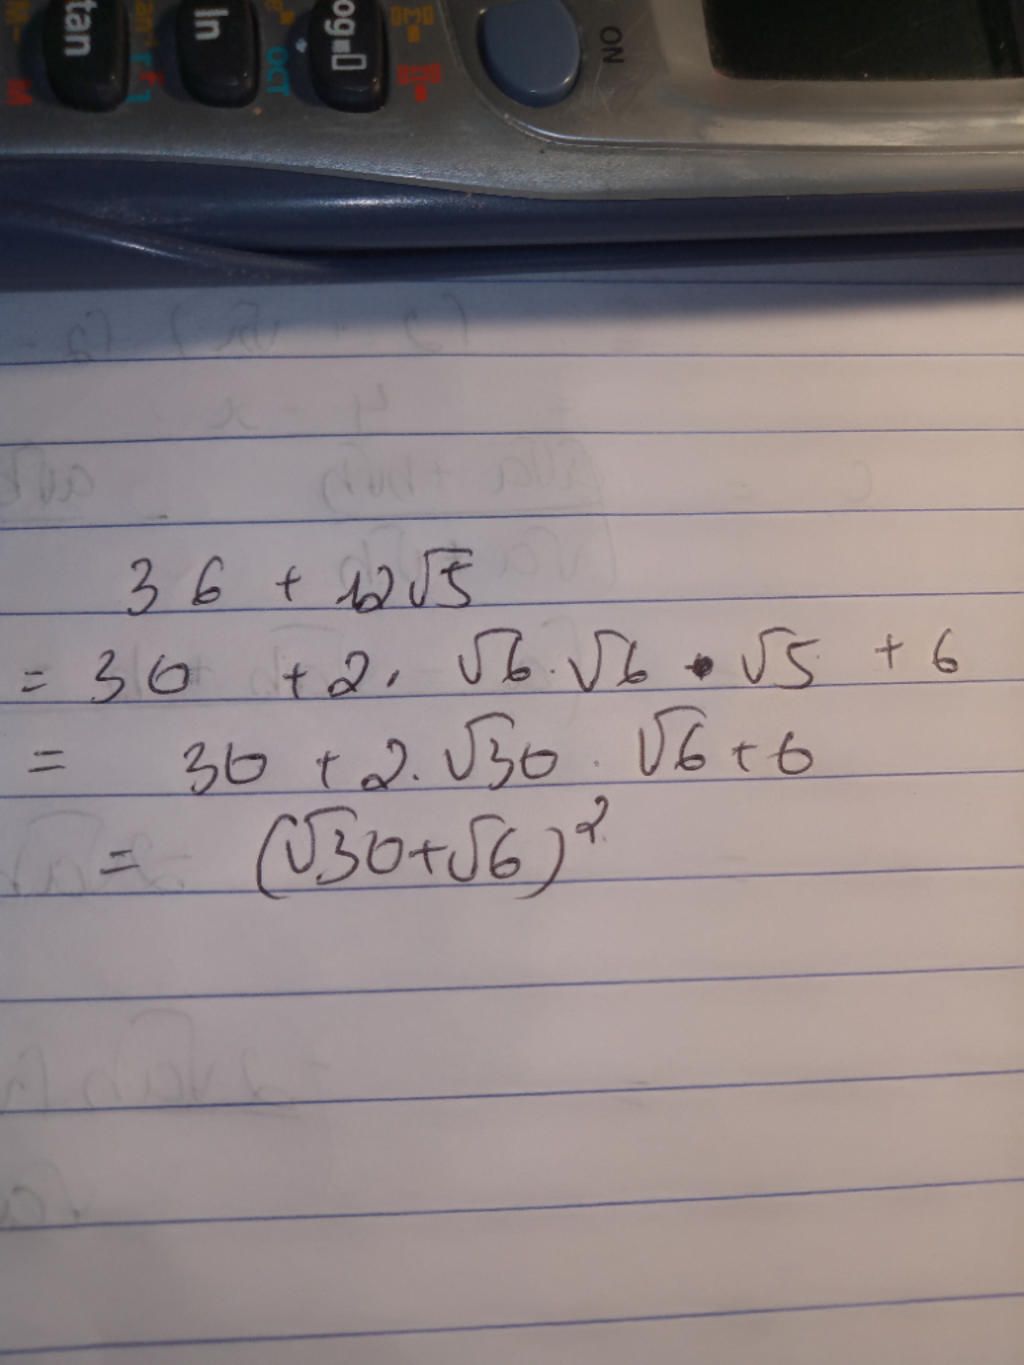 tan ln log ON
OCT
36 + 12√5
= 30 + 2. √6.√6 . √5 + 6
= 30 + 2.√30 . √6 + 6
= (√30+√6)²